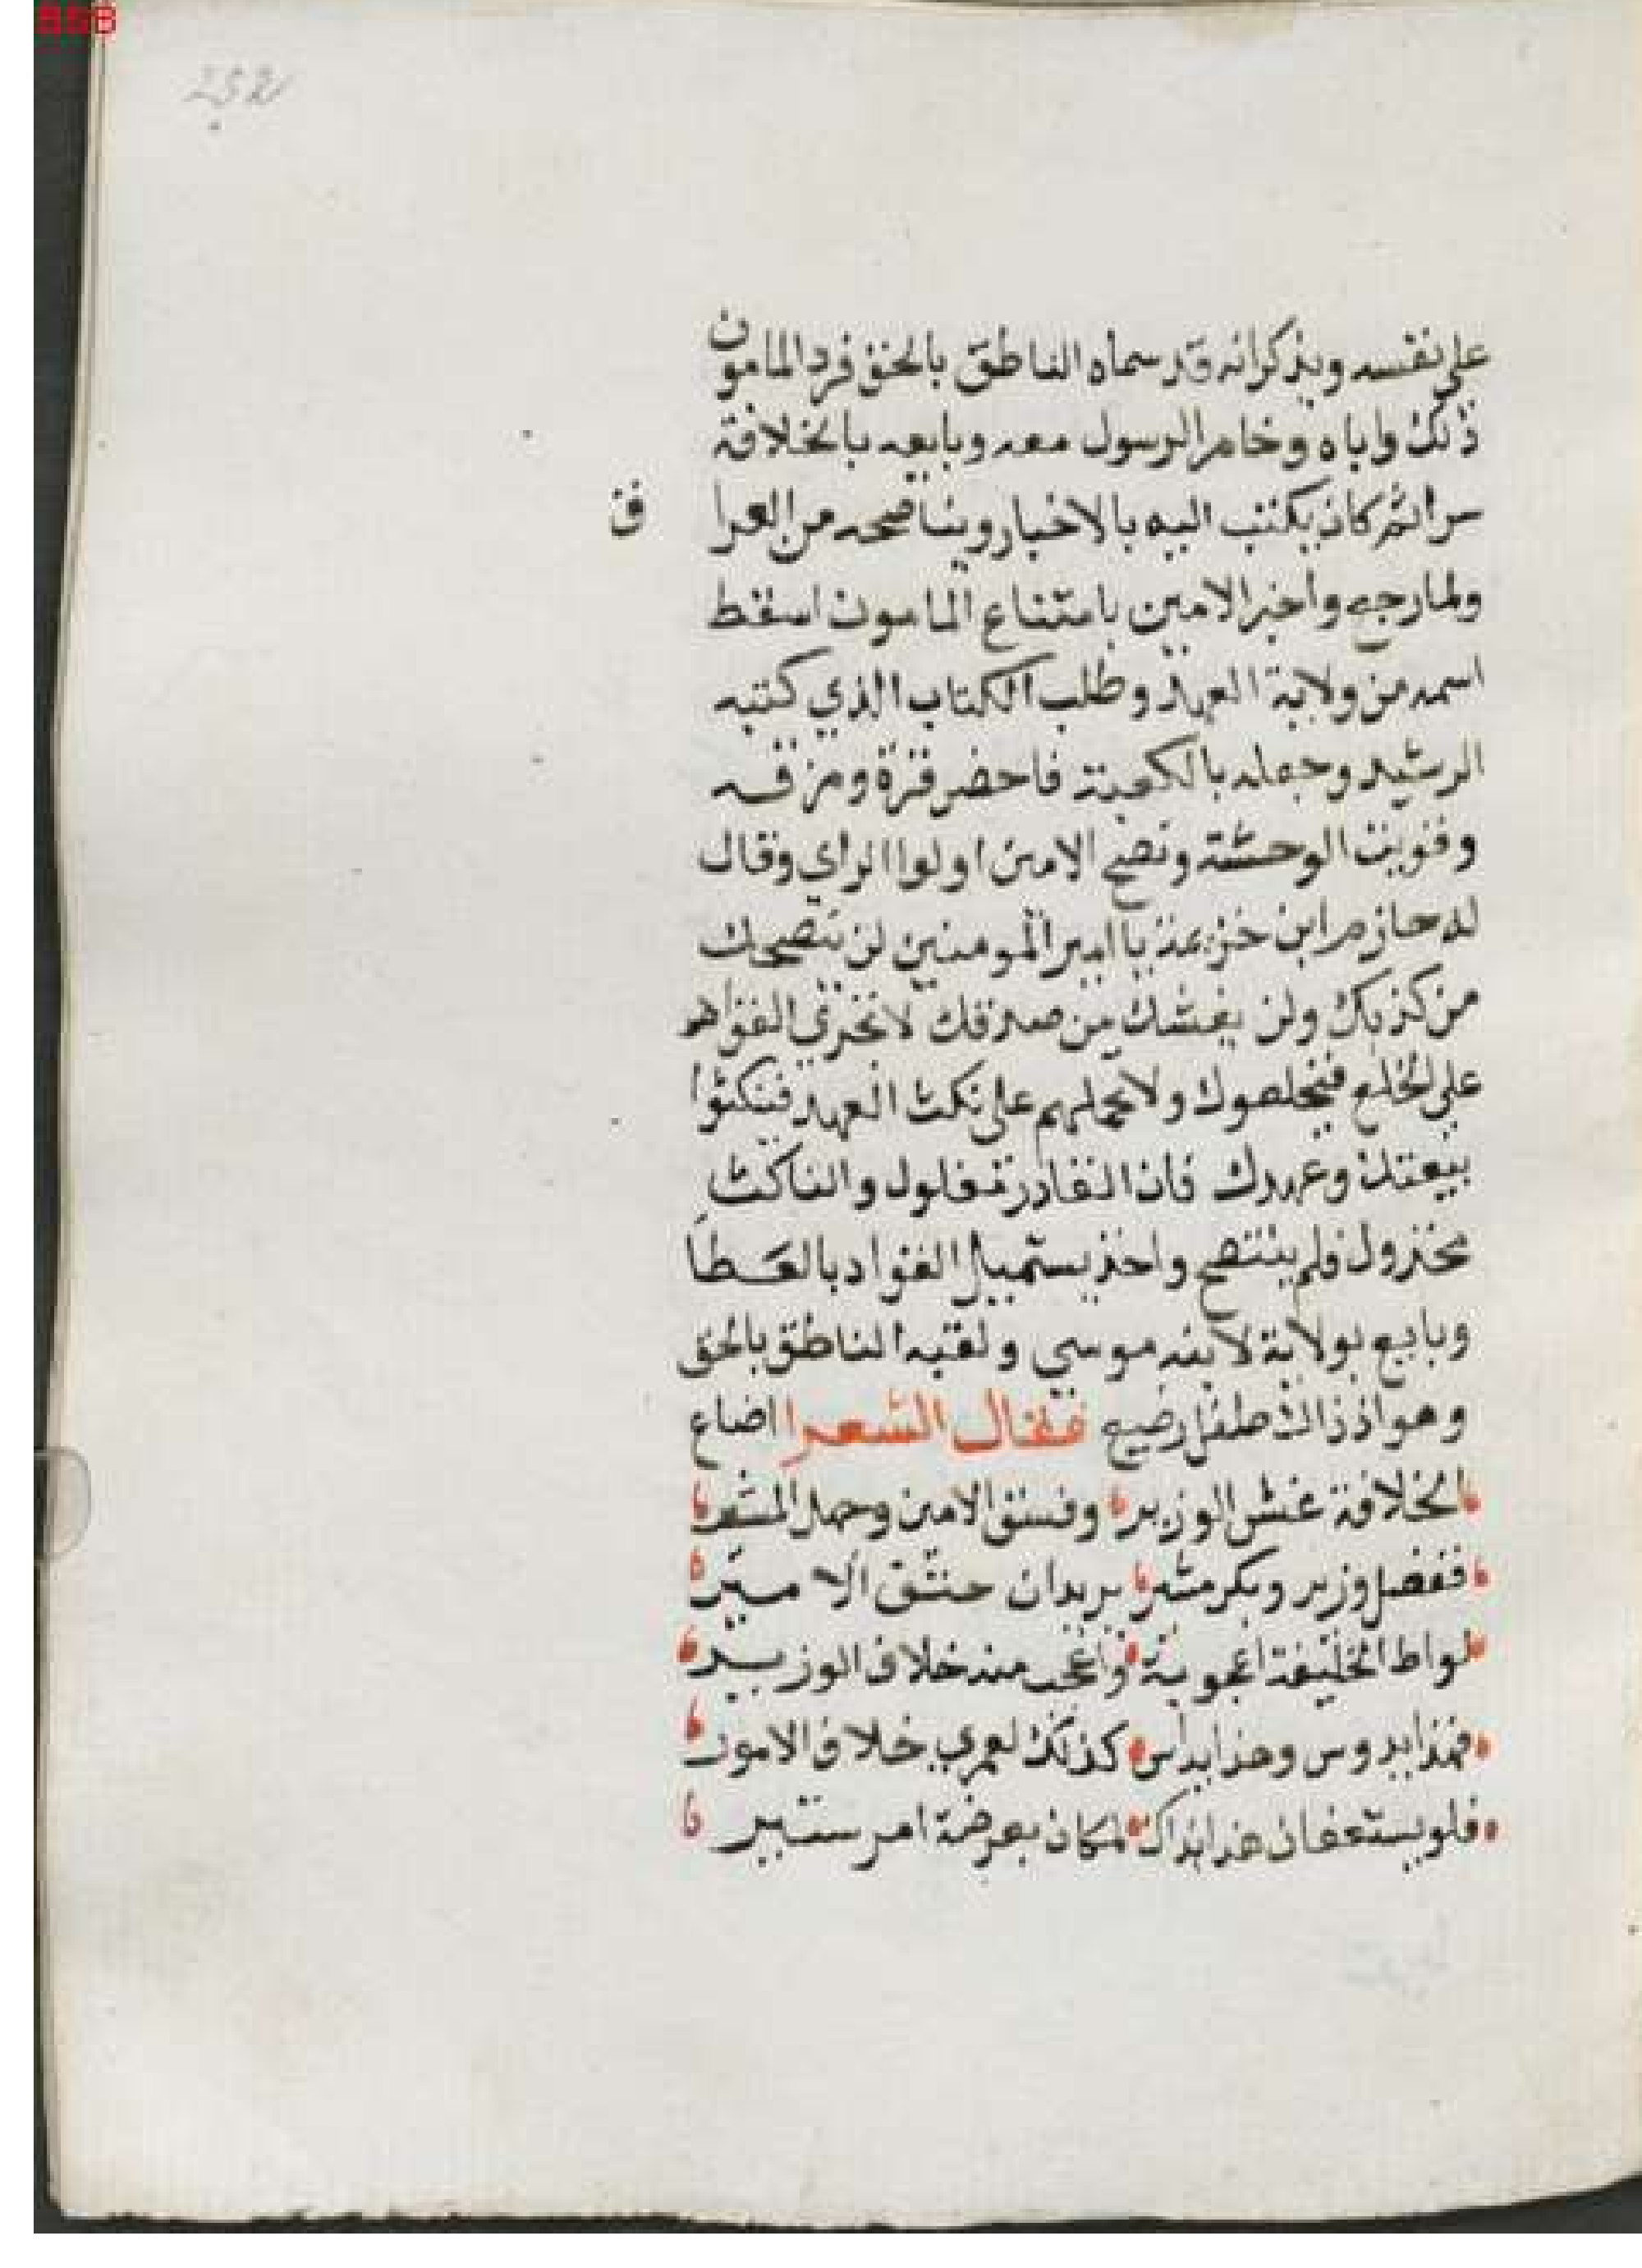 BSB
252
على نفسه ويذكر انه قد سماه الناطق بالحق فرد المامون
ذلك واباه وخامر الرسول معه وبايعه بالخلافة
سرا ثم كان يكتب اليه بالاخبار ويناصحه من العراق
ولما رجع واخبر الامين بامتناع المامون اسقط
اسمه من ولاية العهد وطلب الكتاب الذي كتبه
الرشيد وجعله بالكعبة فاحضره ومزقه
وقويت الوحشة ونصح الامين اولوا الراي وقال
له حازم ابن خزيمة يا امير المومنين لن ينصحك
من كذبك ولن يغشك من صدقك لا تجري القواد
على الخلع فيخلعوك ولا تحملهم على نكث العهد فينكثوا
بيعتك وعهدك فان الغادر مغلول والناكث
مخذول فلم ينتصح واخذ يستميل القواد بالعطا
وبايع بولاية لابنه موسى ولقبه الناطق بالحق
وهو اذ ذاك طفل رضيع فقال الشعرا اضاع
الخلافة غش الوزير وفسق الامين وجهل المشير
ففضل وزير وبكر مشير يريدان حتق الامير
لواط الخليفة اعجوبة واعجب منه خلاف الوزير
فهذا يدوس وهذا يداس كذلك لعمري خلاف الامور
فلو يستعفان هذا بذاك لكان بعرضة امر ستير